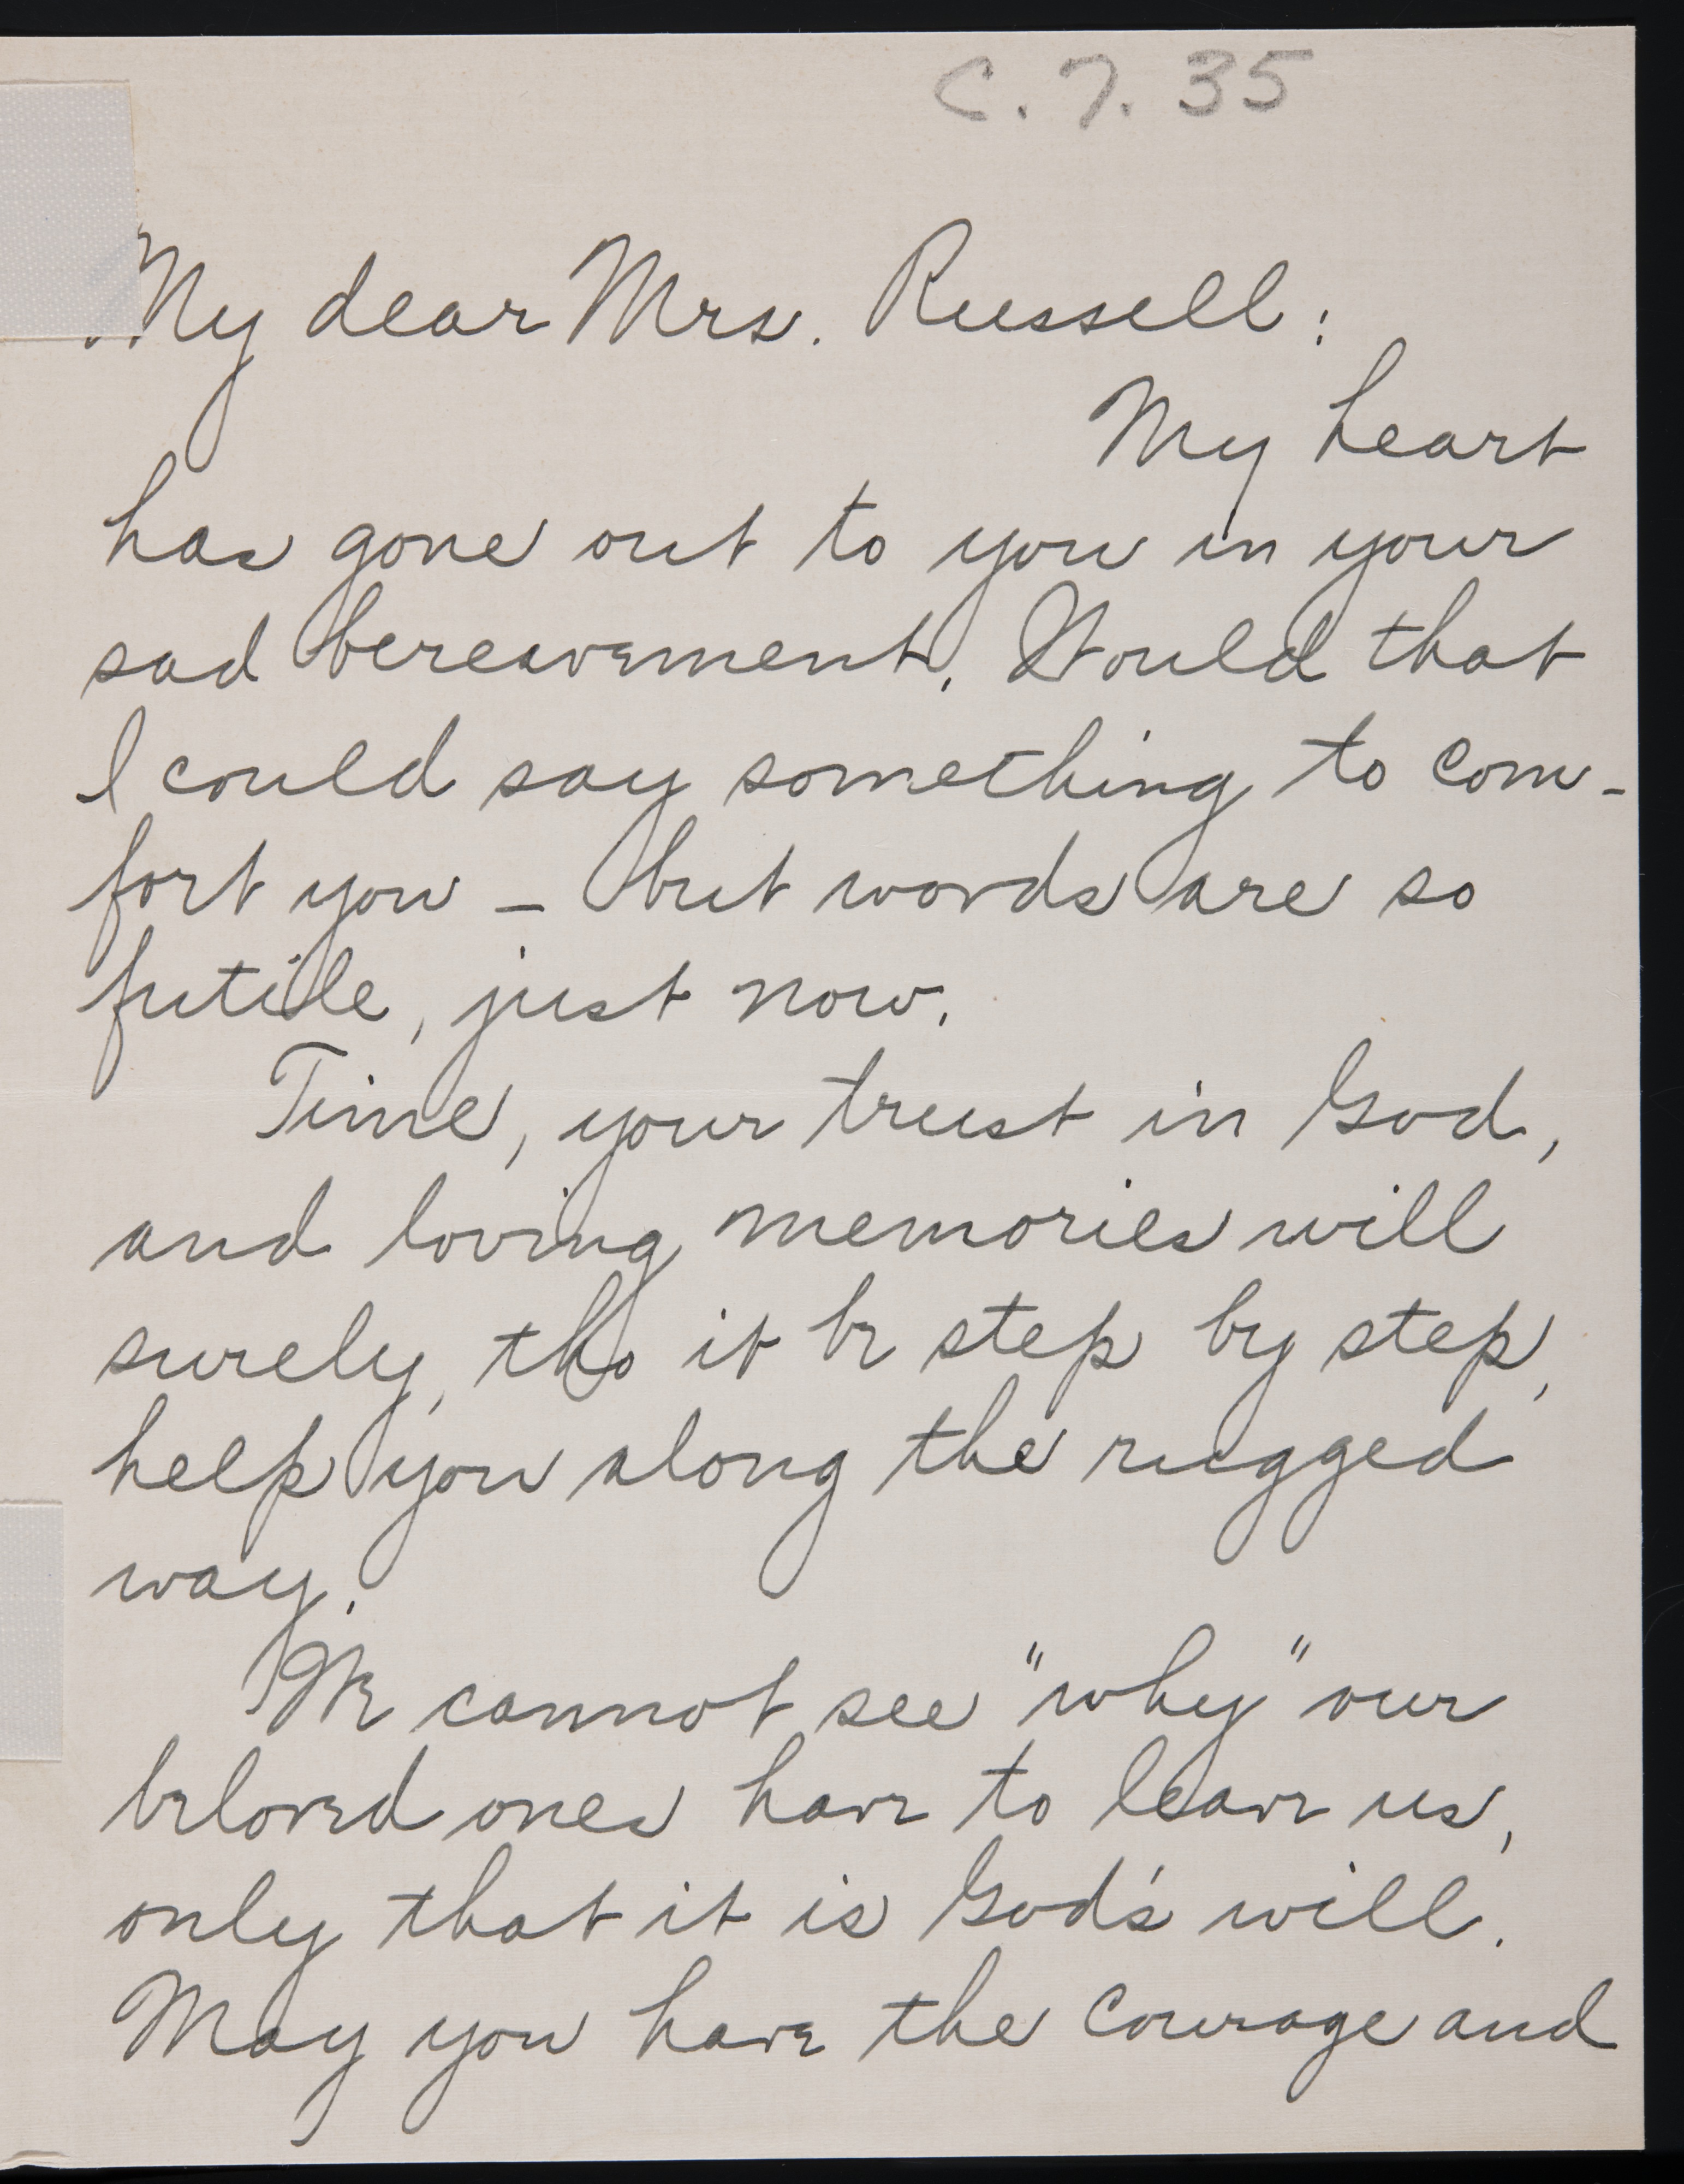 C. 7. 35
My dear Mrs. Russell:
My heart
has gone out to you in your
sad bereavement. Would that
I could say something to com-
fort you - but words are so
futile, just now.
Time, your trust in God,
and loving memories will
surely, tho it be step by step,
help you along the rugged
way.
We cannot see "why" our
beloved ones have to leave us,
only that it is God's will.
May you have the courage and